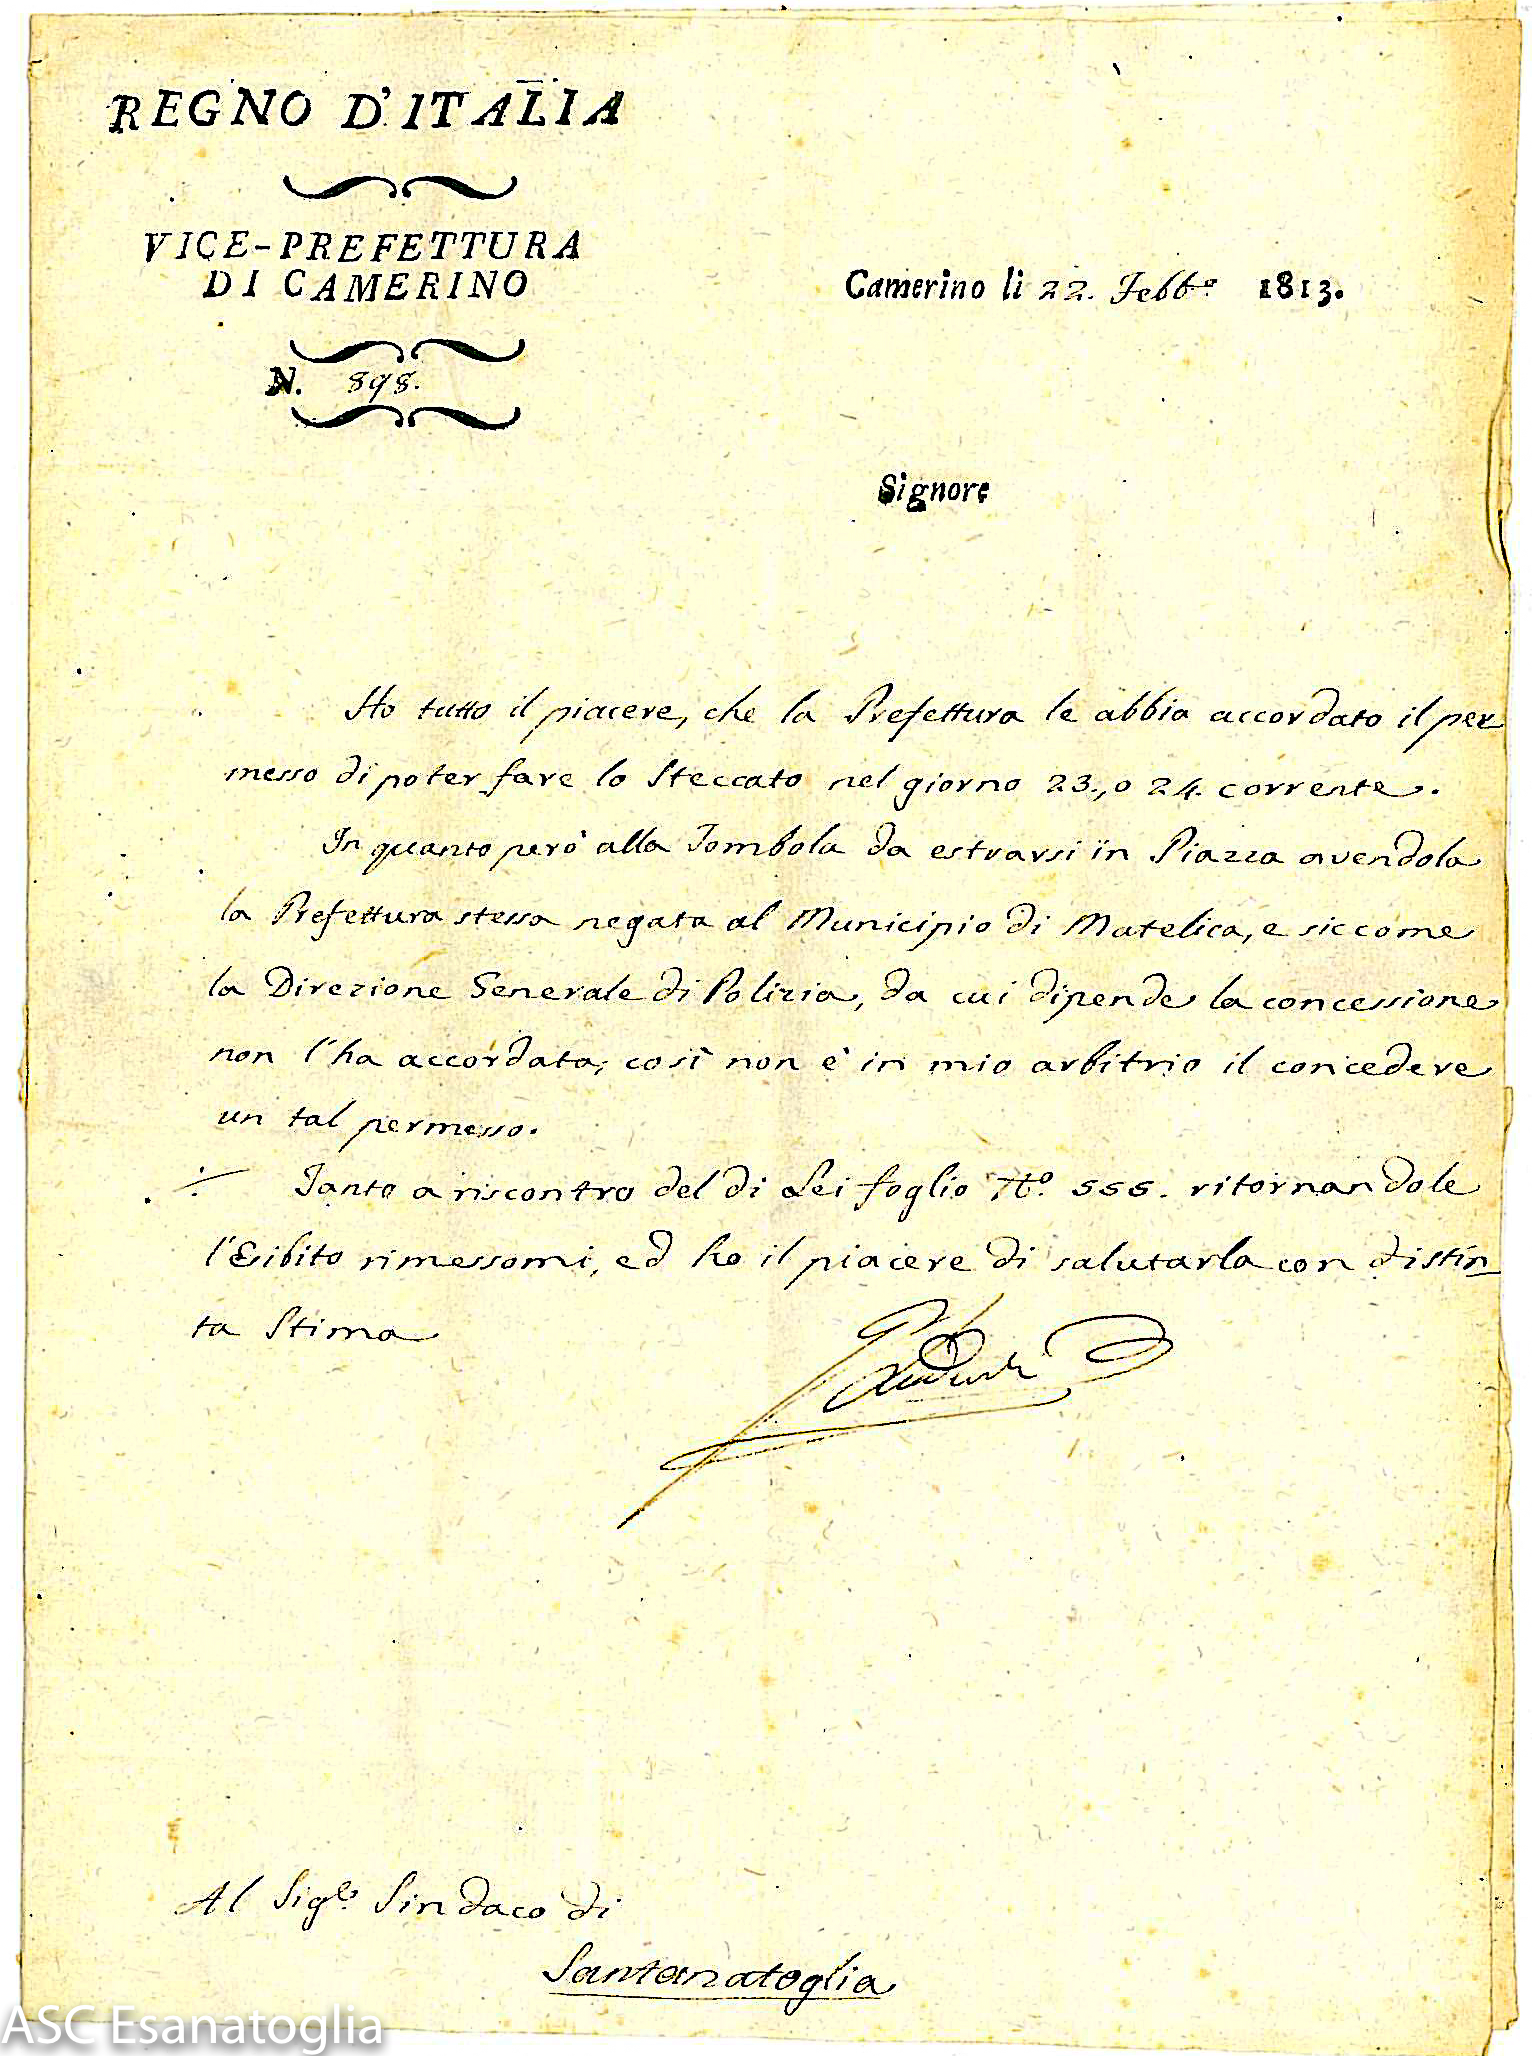 REGNO D'ITALIA
VICE-PREFETTURA
DI CAMERINO
N. 898.
Camerino li 22. Febb.º 1813.
Signore
Ho tutto il piacere, che la Prefettura le abbia accordato il per
messo di poter fare lo Steccato nel giorno 23., o 24. corrente.
In quanto però alla Tombola da estrarsi in Piazza avendola
la Prefettura stessa negata al Municipio di Matelica, e siccome
la Direzione Generale di Polizia, da cui dipende la concessione
non l'ha accordata, così non è in mio arbitrio il concedere
un tal permesso.
Tanto a riscontro del di Lei foglio Nº. 555. ritornandole
l'Esibito rimessomi, ed ho il piacere di salutarla con distin
ta Stima
Al Sig.e Sindaco di
Santanatoglia
ASC Esanatoglia